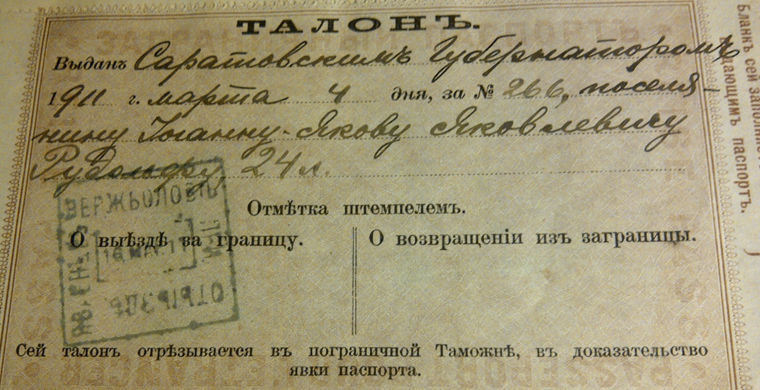 ТАЛОНЪ.
Выданъ Саратовскимъ Губернаторомъ
1911 г. марта 4 дня, за № 266, поселя-
нину Іоганну-Якову Яковлевичу
Рудольфу 24 л.
Отмѣтка штемпелемъ.
О выѣздѣ за границу.
О возвращеніи изъ заграницы.
ВЕРЖБОЛОВЪ
ОТЪѢЗДЪ
Сей талонъ отрѣзывается въ пограничной Таможнѣ, въ доказательство
явки паспорта.
Бланкъ сей заполняется
паспортъ.